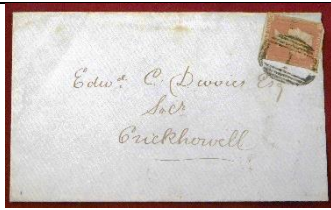 Edwd. C. Davies Esq
Solr
Crickhowell